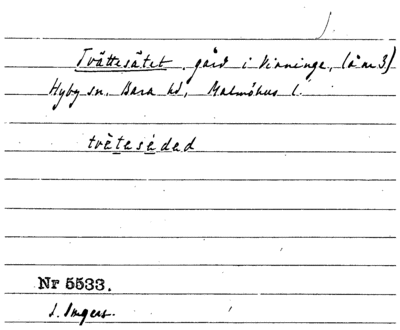 Tvättesätet, gård i Vinninge, (å nr 3)
Hyby sn, Bara hd, Malmöhus l.
tvètesédad
Nr 5533.
I. Ingers.